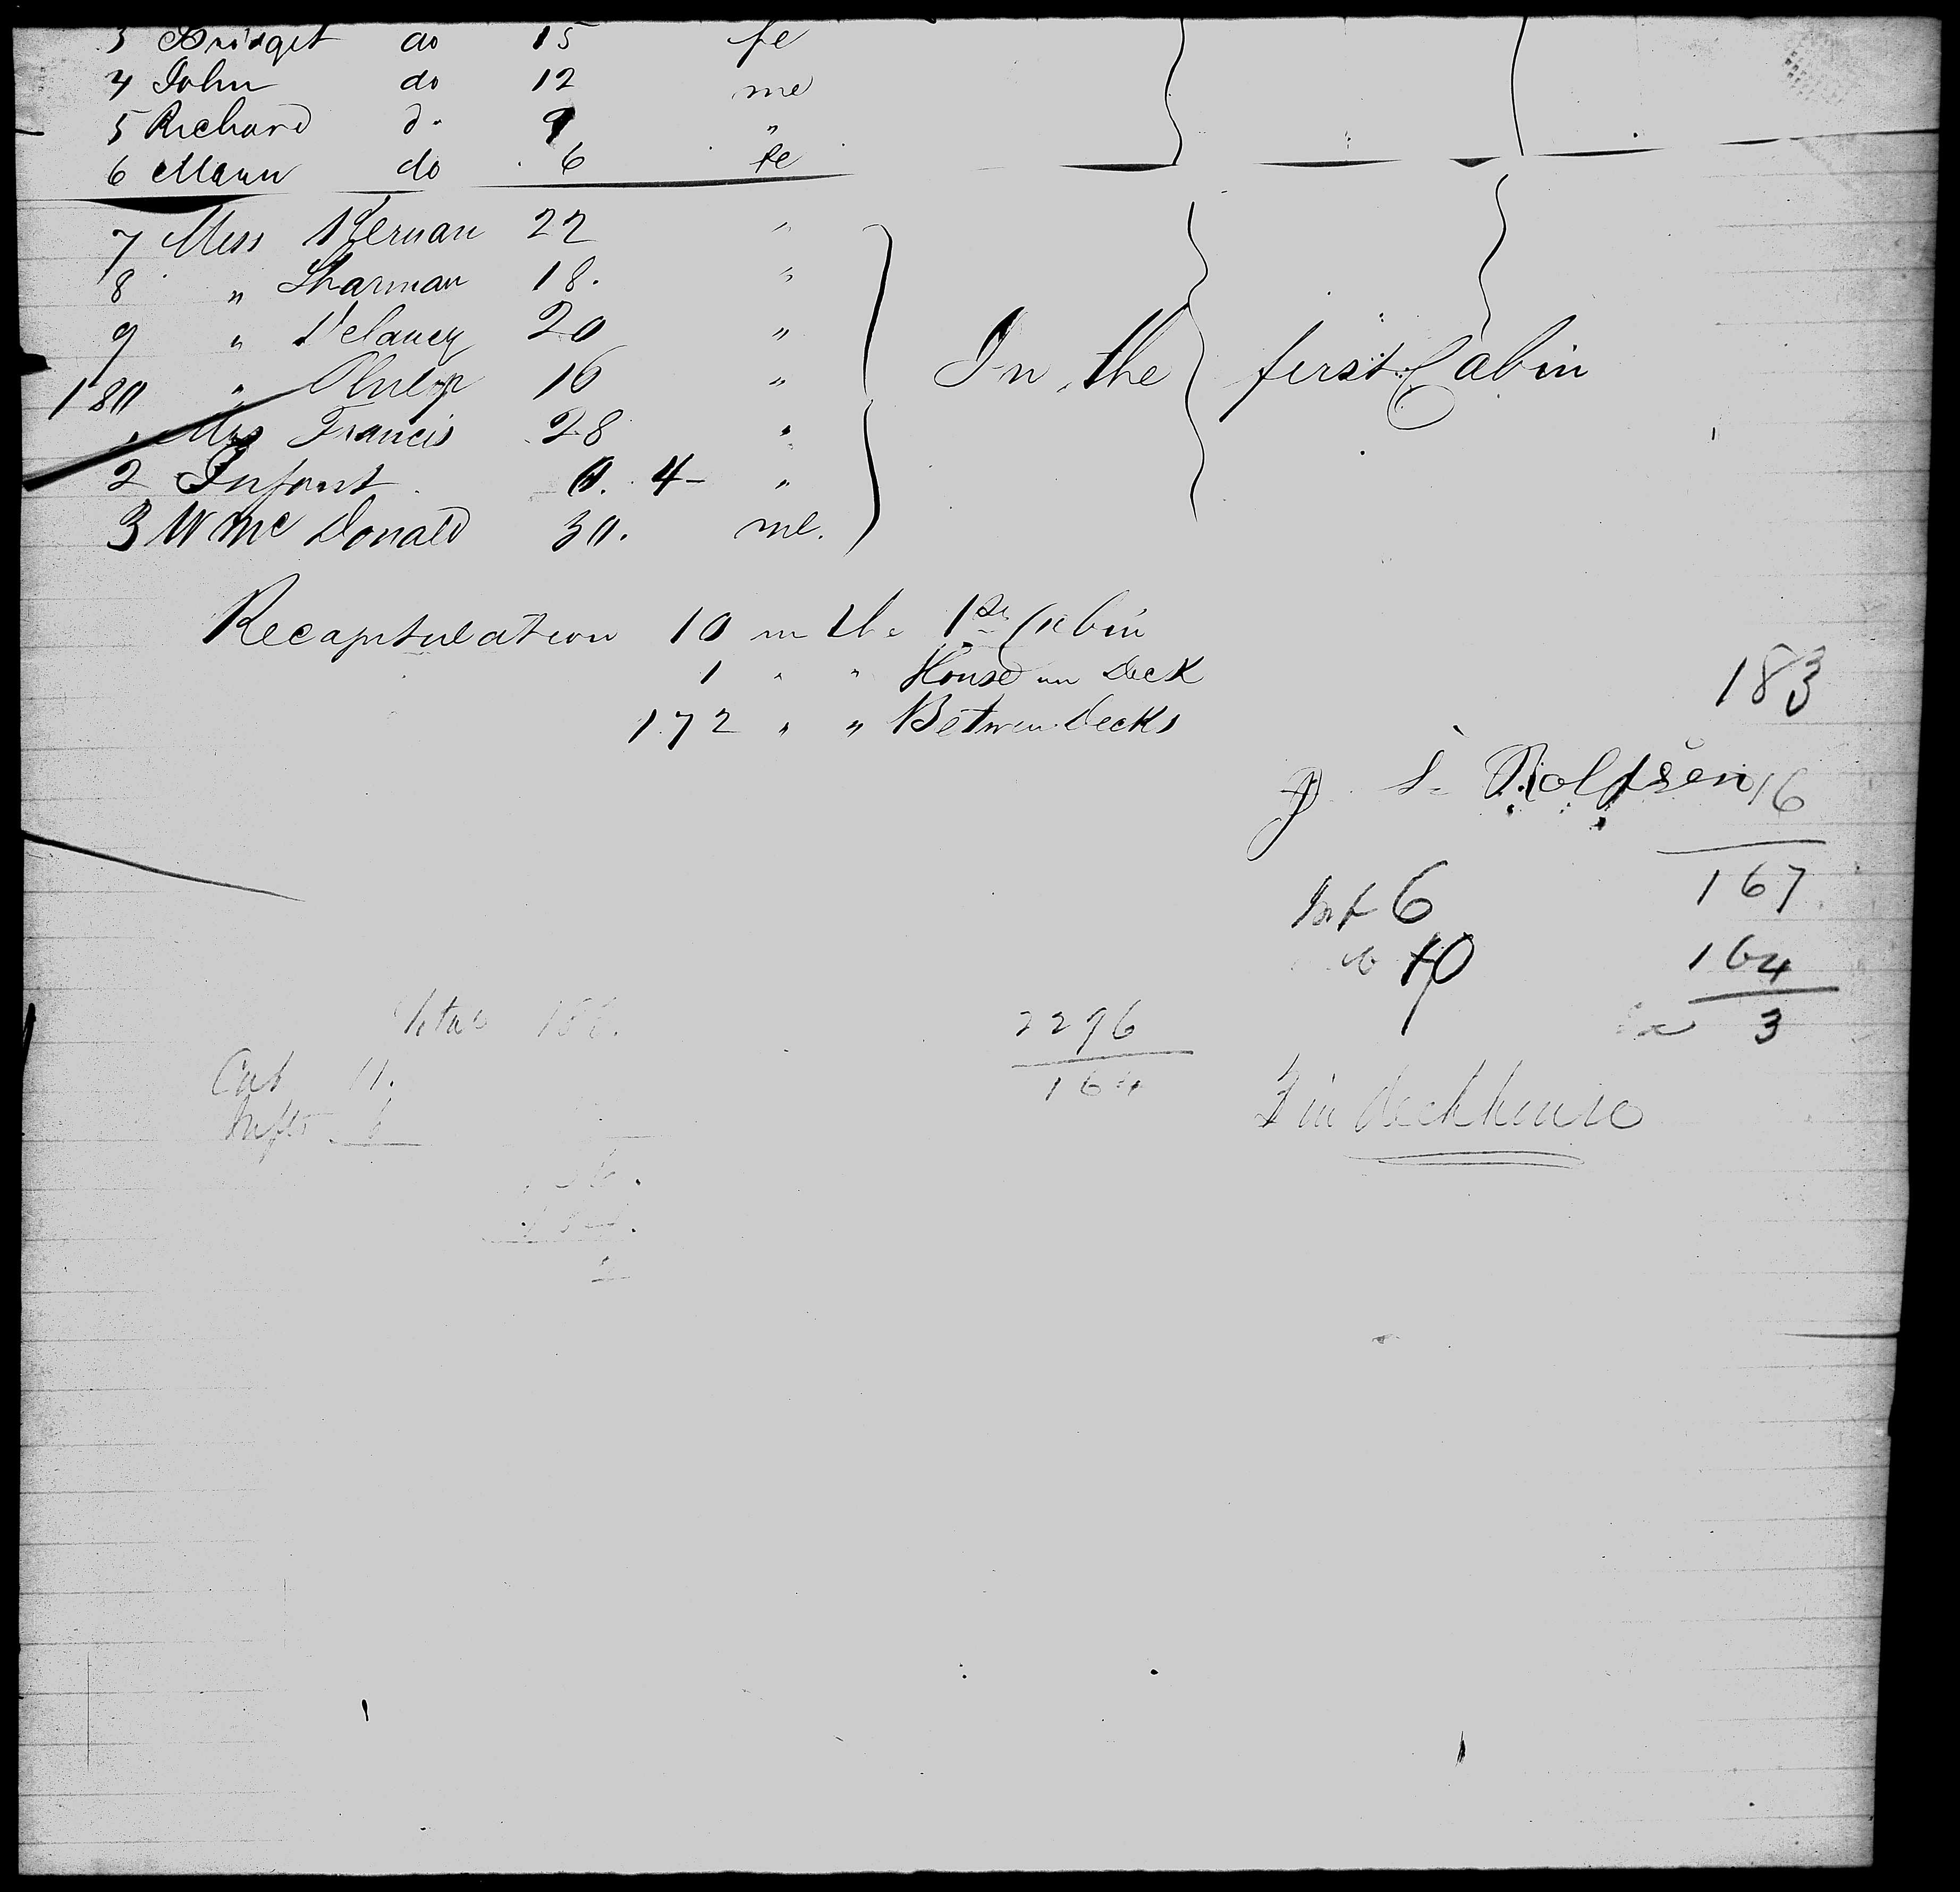 3 Bridget do 15 fe
4 John do 12 me
5 Richard do 9 "
6 Mann do 6 fe
7 Miss Kernan 22 "
8 " Sharman 18. "
9 " Delancy 20 "
180 " Philip 16 "
" Mrs Francis 28 "
2 Infant 0. 4- "
3 W Mc Donald 30. me.
In the first Cabin
Recapitulation 10 in the 1st Cabin
1 " " House on Deck
172 " " Between Decks
183
J. S. Rolfsen 16
167
Inf 6
10
164
3
Total
2296
164
Cab 11.
Infts 6
3 in deckhouse